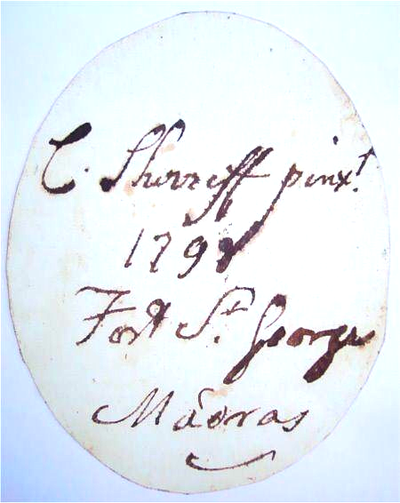 C. Shirreff pinx.t
1798
Fort St. George
Madras